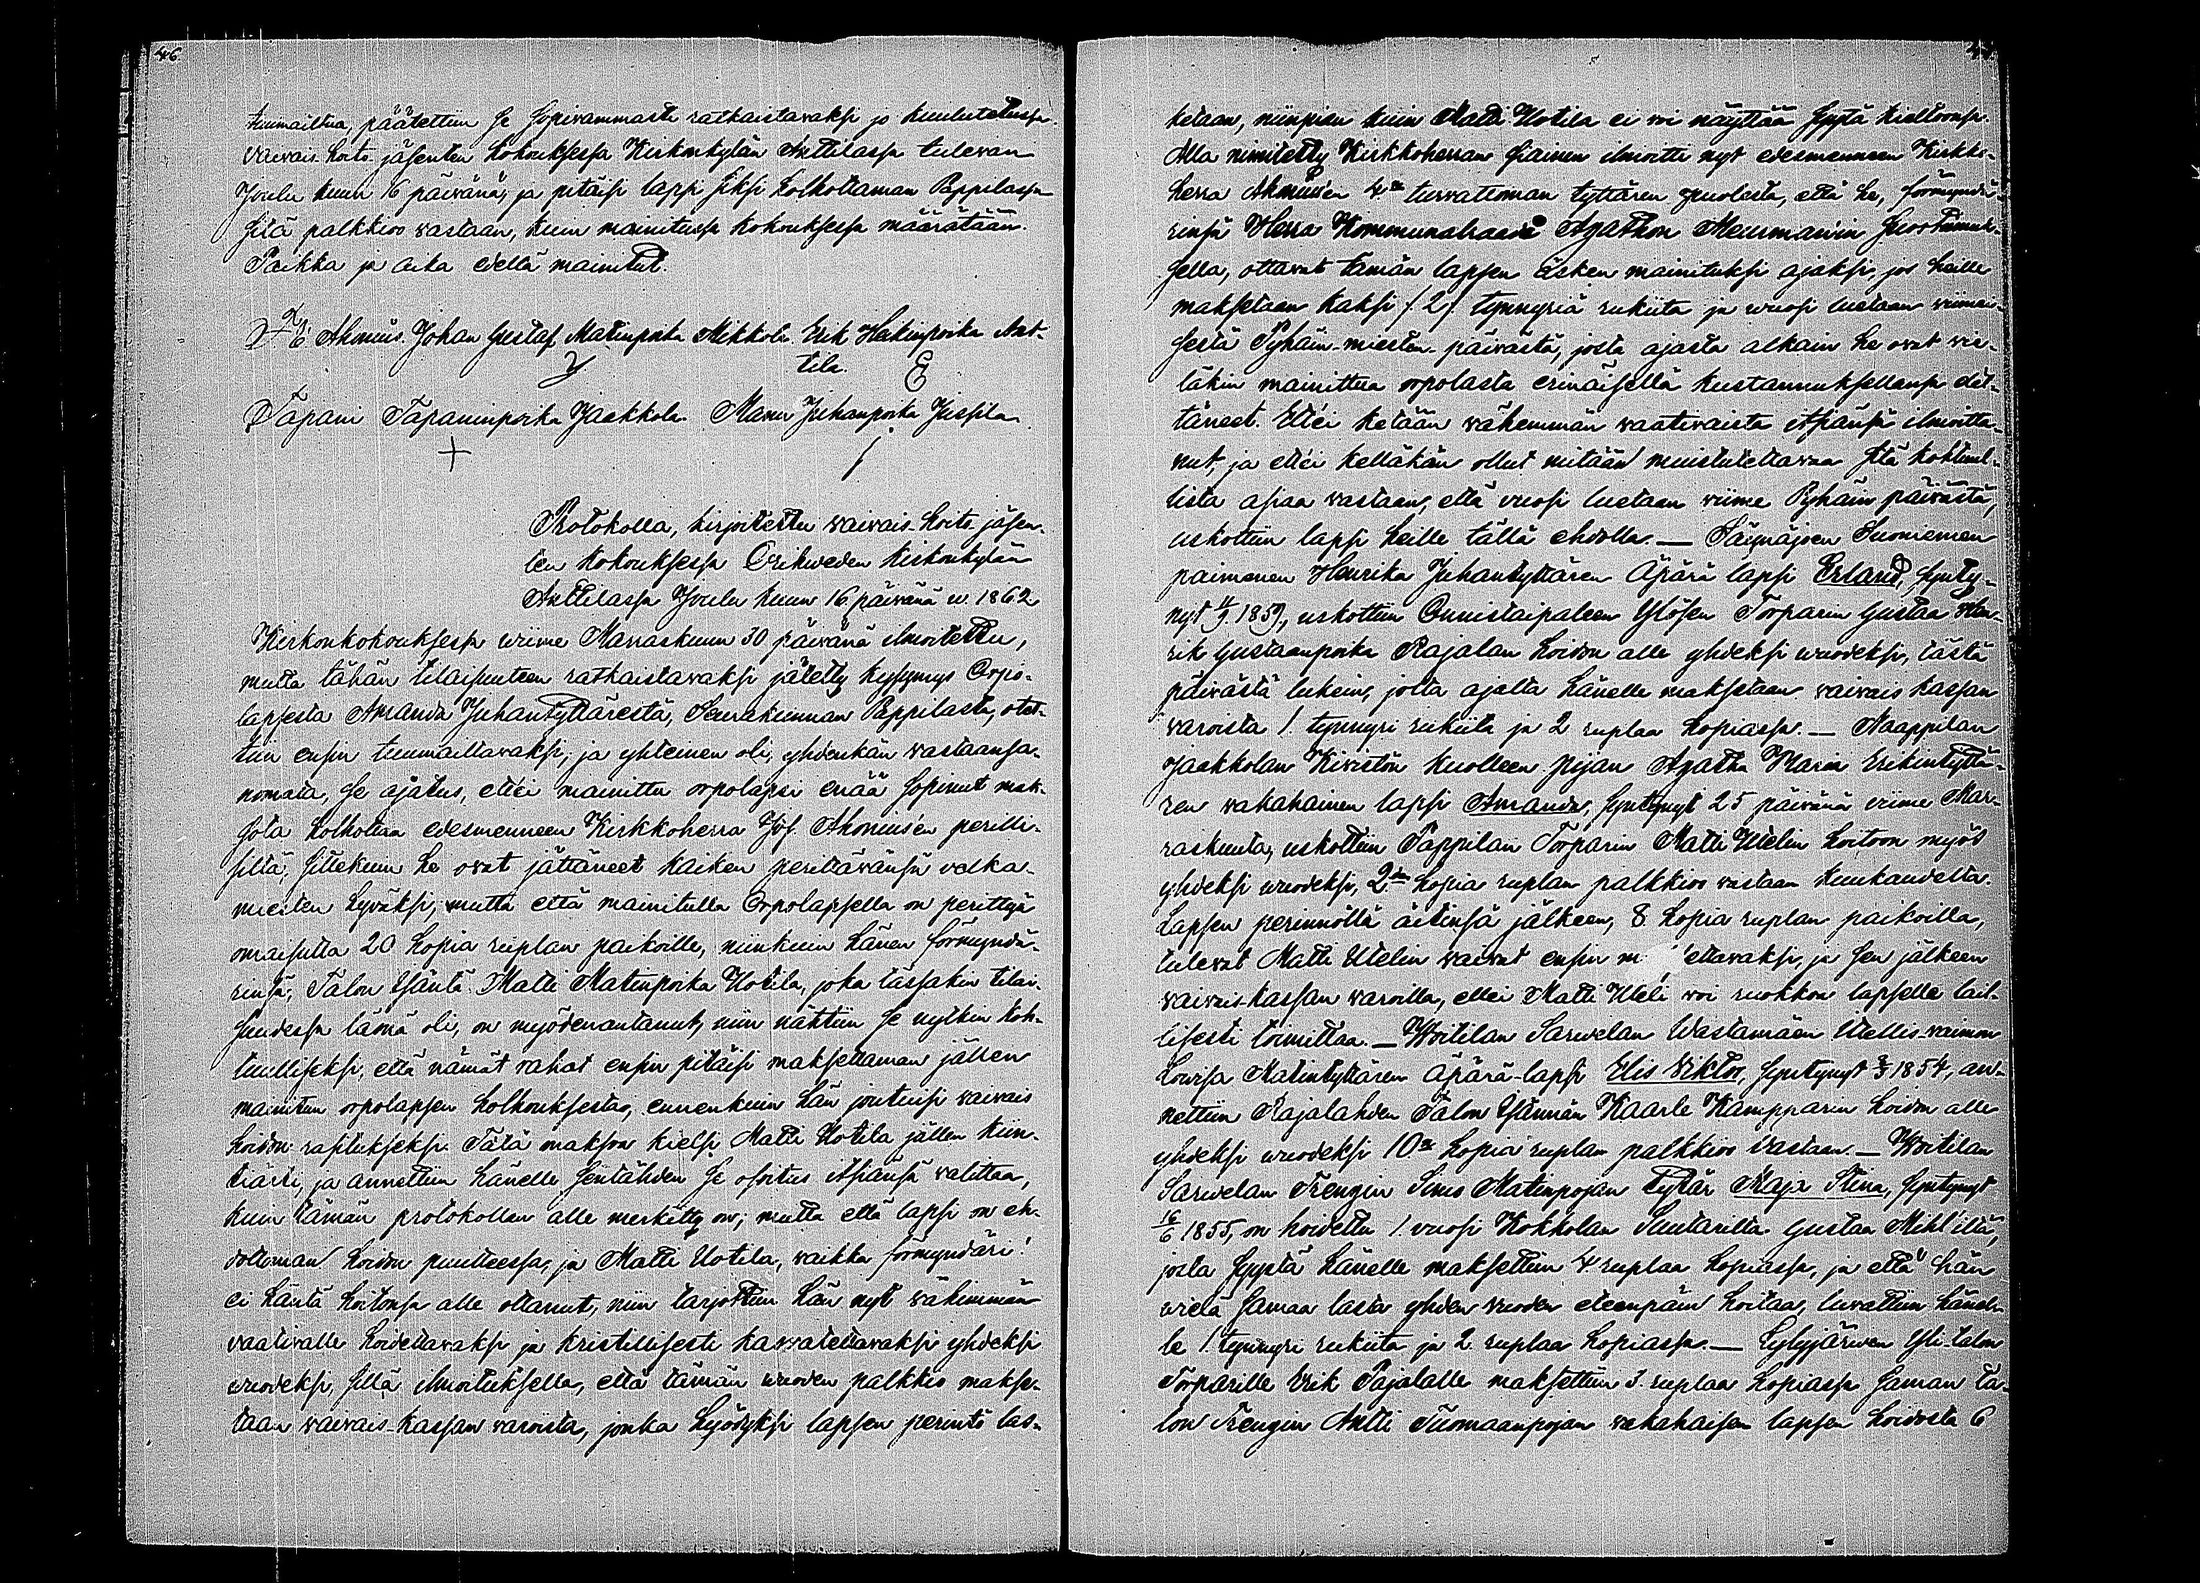 46
tuumailtua, päätettiin se sopivammasti ratkaistavaksi jo kuulutetussa
vaivais-hoito-jäsenten kokouksessa Kirkonkylän Anttilassa tulevan
Joulu kuun 16 päivänä, ja pitäisi lapsi siksi holhottaman Pappilassa
sitä palkkioo vastaan, kuin mainitussa kokouksessa määrätään.
Paikka ja aika edellä mainitut.
Ahonius. Johan Gustaf Matinpoika Mikkola. Erik Heikinpoika Ant-
tila.
Tapani Tapaninpoika Jaakkola. Manu Juhanpoika Jussila
Protokolla, kirjoitettu vaivais-hoito jäsen-
ten kokouksessa Oriweden kirkonkylän
Anttilassa Joulu kuun 16 päivänä w. 1862
Kirkonkokouksessa wiime Marraskuun 30 päivänä ilmoitettu,
mutta tähän tilaisuuteen ratkaistavaksi jätetty kysymys Orpo-
lapsesta Amanda Juhantyttärestä, Seurakunnan Pappilasta, otet-
tiin ensin tuumailtavaksi, ja yhteinen oli, yhdenkän vastaansa-
nomata, se ajatus, ettei mainittu orpolapsi enää sopinut mak-
sota holhottaa edesmenneen Kirkkoherra Jos. Ahonius'en perilli-
siltä, sittekuin he ovat jättäneet kaiken perittävänsä velka-
miesten hyväksi, mutta että mainitulla Orpolapsella on perittyä
omaisutta 20 hopia ruplan paikoille, niinkuin hänen förmyndä-
rinsä, Talon Isäntä Matti Matinpoika Uotila, joka tässäkin tilai-
suudessa läsnä oli, on myödenantanut, niin nähtiin se nytkin koh-
tuulliseksi, että nämät rahat ensin pitäisi maksettaman jällen
mainitun orpolapsen holhouksesta, ennenkuin hän joutuisi vaivais
hoidon rasituksekse. Tätä maksoa kielsi Matti Uotila jällen kiin-
tiästi, ja annettiin hänelle sentähden se osoitus itsiänsä valittaa,
kuin tämän protokollan alle merkitty on; mutta että lapsi on eh-
dottoman hoidon puutteessa, ja Matti Uotila, vaikka förmyndäri
ei häntä hoitonsa alle ottanut, niin tarjottiin hän nyt vähimmän
vaativalle hoidettavaksi ja kristillisesti kasvatettavaksi yhdeksi
wuodeksi, sillä ilmoituksella, että tämän wuoden palkkio makse-
taan vaivais-kassan varoista, jonka hyödyksi lapsen perintö las-
ketaan, niinpian kuin Matti Uotila ei voi näyttää syytä kieltoonsa.
Alla nimitetty Kirkkoherran siainen ilmoitti nyt edesmenneen Kirkko-
herra Ahonius'en 4n turvattoman tyttären puolesta, että he, förmyndä-
rinsä Herra Kommunalraadi Agathon Meurman'in suostumuk-
sella, ottavat tämän lapsen äsken mainituksi ajaksi, jos heille
maksetaan kaksi /: 2 :/ tynnyriä rukiita ja wuosi luetaan wiimei-
sestä Pyhäin-miesten-päivästä, josta ajasta alkain he ovat vie-
läkin mainittua orpolasta erinäisellä kustannuksellansa elät-
täneet. Ettei ketään vähemmän vaativaista itsiänsä ilmoitta-
nut, ja ettei kelläkän ollut mitään muistutettavaa sitä kohtuul-
lista asiaa vastaan, että vuosi luetaan wiime Pyhäin päivästä,
uskottiin lapsi heille tällä ehdolla. — Säynäjoen Suoniemen
paimenen Henrika Juhantyttären Äpärä lapsi Erland, synty-
nyt 1857, uskottiin Onnistaipaleen Ylösen Torparin Gustaa Hen-
rik Gustaanpoika Rajalan hoidon alle yhdeksi wuodeksi, tästä
päivästä lukein, jolta ajalta hänelle maksetaan vaivais kassan
varoista 1. tynnyri rukiita ja 2 ruplaa hopiassa. — Naappilan
Jaakkolan Kiviston kuolleen piian Agatha Maria Erikintyttä-
ren vakahainen lapsi Amanda, syntynyt 25 päivänä viime Mar-
raskuuta, uskottiin Pappilan Torparin Matti Utelin hoitoon myös
yhdeksi wuodeksi, 2n hopia ruplan palkkioo vastaan kuukaudelta.
Lapsen perinnöllä äitinsä jälkeen, 8. hopia ruplan paikoilla,
tulevat Matti Utelin vaivat ensin m ettavaksi, ja sen jälkeen
vaivais-kassan varoilla, ellei Matti Uteli voi ruokkoa lapselle lail-
lisesti toimittaa. — Woitilan Sarvelan Wastamäen Itellis-vaimon
Lovisa Matintyttären Äpärä-lapsi Elis Viktor, syntynyt 1854, an-
nettiin Rajalahden Talon Isännän Kaarle Kampparin hoidon alle
yhdeksi wuodeksi 10n hopia ruplan palkkioo vastaan. — Woitilan
Sarvelan Trengin Simo Matinpojan tytär Maja Stina, syntynyt
16/6 1855, on hoidettu 1. vuosi Kokkolan Suutarilta Gustaa Mihl'iltä,
josta syystä hänelle maksettiin 4. ruplaa hopiassa, ja että hän
vielä samaa lasta yhden vuoden eteenpäin hoitaa, luvattiin hänel-
le 1. tynnyri rukiita ja 2 ruplaa hopiassa. — Lylyjärven Yli-talon
Torparille Erik Pajalalle maksettiin 3. ruplaa hopiassa saman ta-
lon Trengin Antti Tuomaanpojan vakahaisen lapsen hoidosta 6